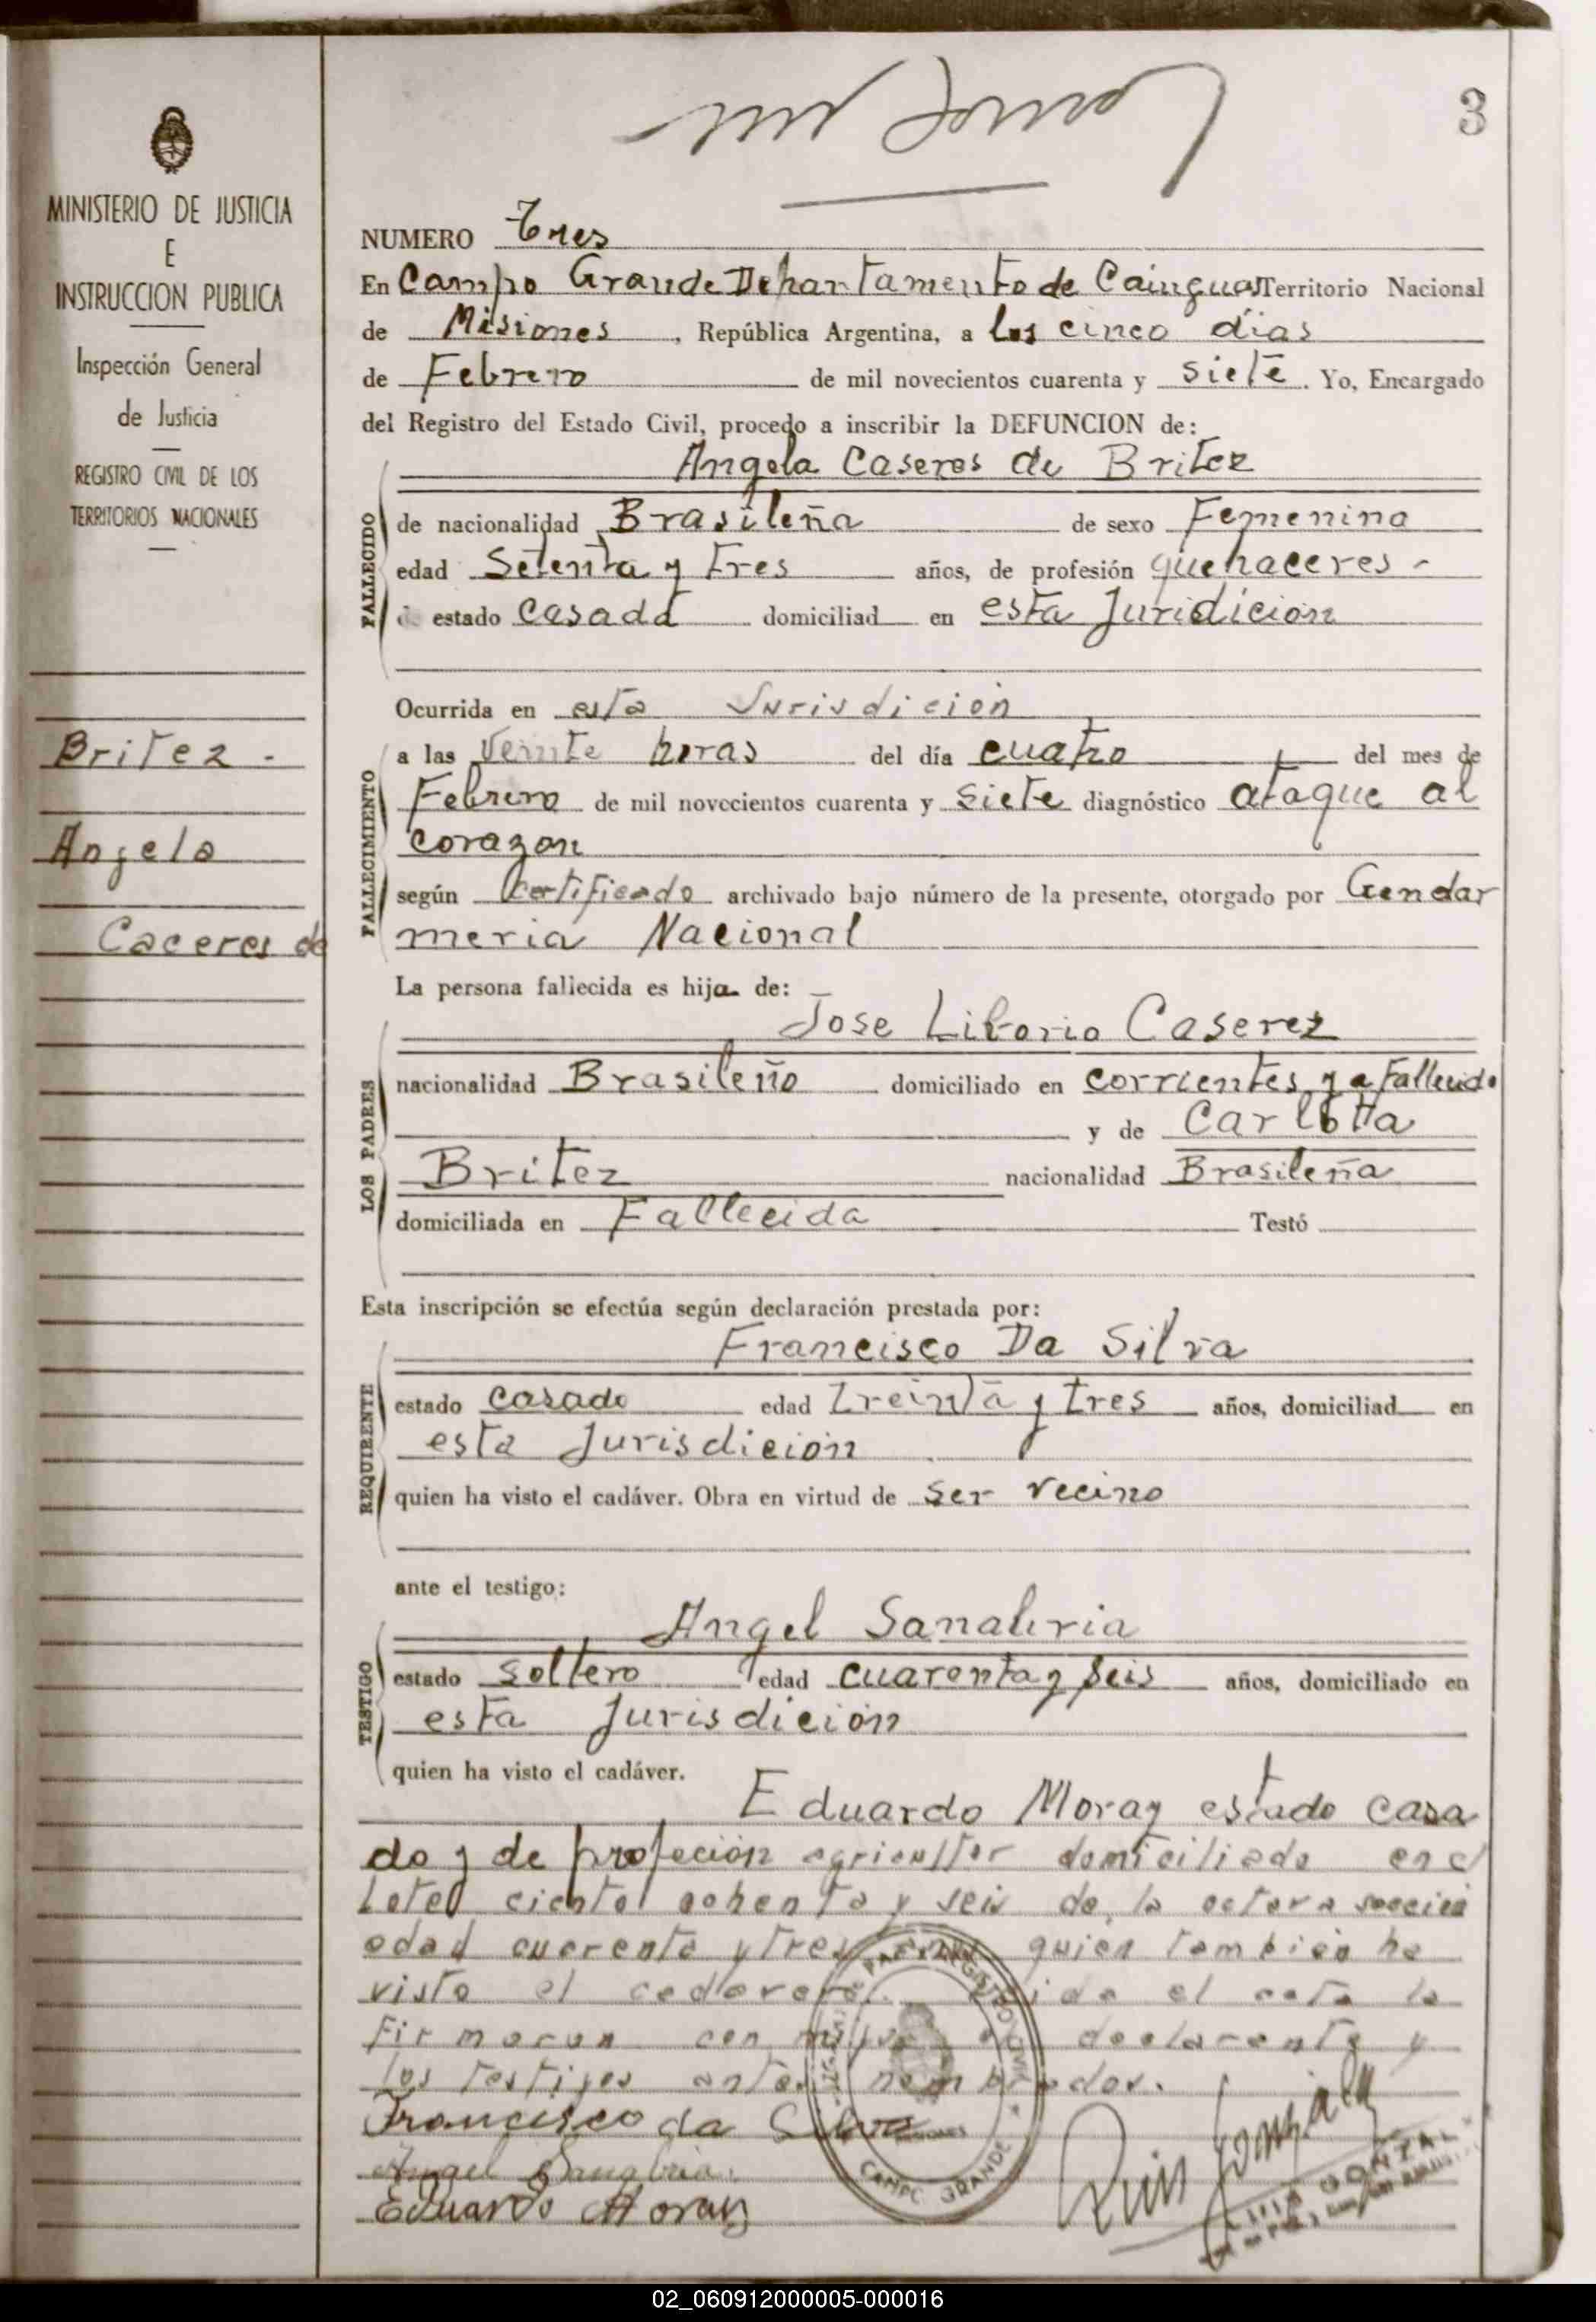 3
MINISTERIO DE JUSTICIA
E
INSTRUCCION PUBLICA
Inspección General
de Justicia
REGISTRO CIVIL DE LOS
TERRITORIOS NACIONALES
Britez -
Angela
Caceres de
NUMERO Tres
En Campo Grande Departamento de Cainguas Territorio Nacional
de Misiones, República Argentina, a los cinco dias
de Febrero de mil novecientos cuarenta y siete. Yo, Encargado
del Registro del Estado Civil, procedo a inscribir la DEFUNCION de:
Angela Caseres de Britez
FALLECIDO
de nacionalidad Brasileña de sexo Femenino
edad Setenta y tres años, de profesión quehaceres -
estado casada domiciliad en esta Juridición
Ocurrida en esta Jurisdición
FALLECIMIENTO
a las Veinte horas del día cuatro del mes de
Febrero de mil novecientos cuarenta y siete diagnóstico ataque al
corazon
según Certificado archivado bajo número de la presente, otorgado por Gendar
meria Nacional
La persona fallecida es hija de:
LOS PADRES
Jose Liborio Caserez
nacionalidad Brasileño domiciliado en corrientes ya Fallecido
y de Carlotta
Britez nacionalidad Brasileña
domiciliada en Fallecida Testó
Esta inscripción se efectúa según declaración prestada por:
REQUIRENTE
Francisco Da Silva
estado casado edad treinta y tres años, domiciliad en
esta Jurisdición
quien ha visto el cadáver. Obra en virtud de ser vecino
ante el testigo:
TESTIGO
Angel Sanabria
estado soltero edad cuarenta y seis años, domiciliado en
esta Jurisdición
quien ha visto el cadáver.
Eduardo Moray estado casa
do y de profeción agricultor domiciliado en el
Lote ciento ochenta y seis de la octava
edad cuarenta y tres quien tambien ha
visto el el acta la
Firmaron con el declarante y
los testigos antes nombrados.
Francisco da Silva
Angel Sanabria.
Eduardo Moray
REGISTRO CIVIL
CAMPO GRANDE
02_060912000005-000016